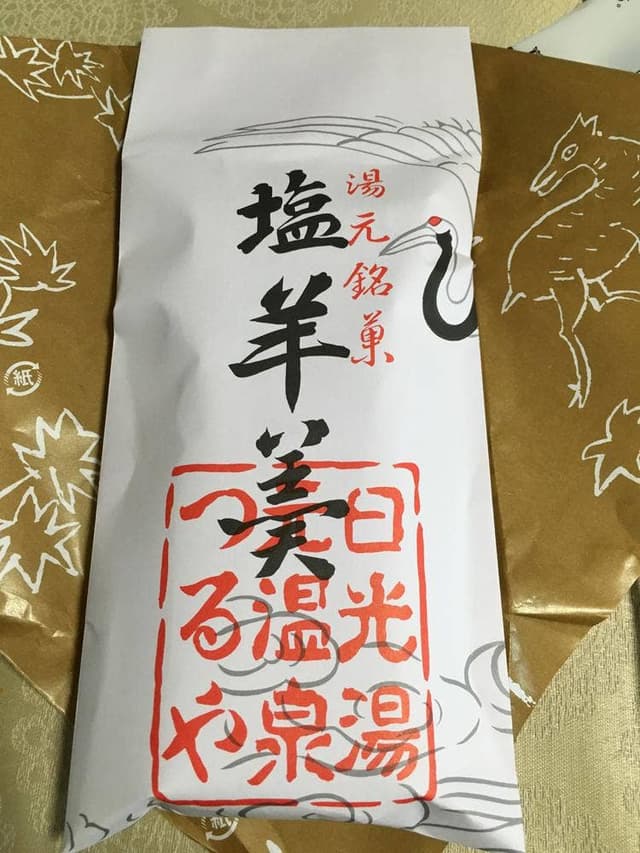 湯元銘菓
塩羊羹
日光湯
元温泉
つるや
紙
紙